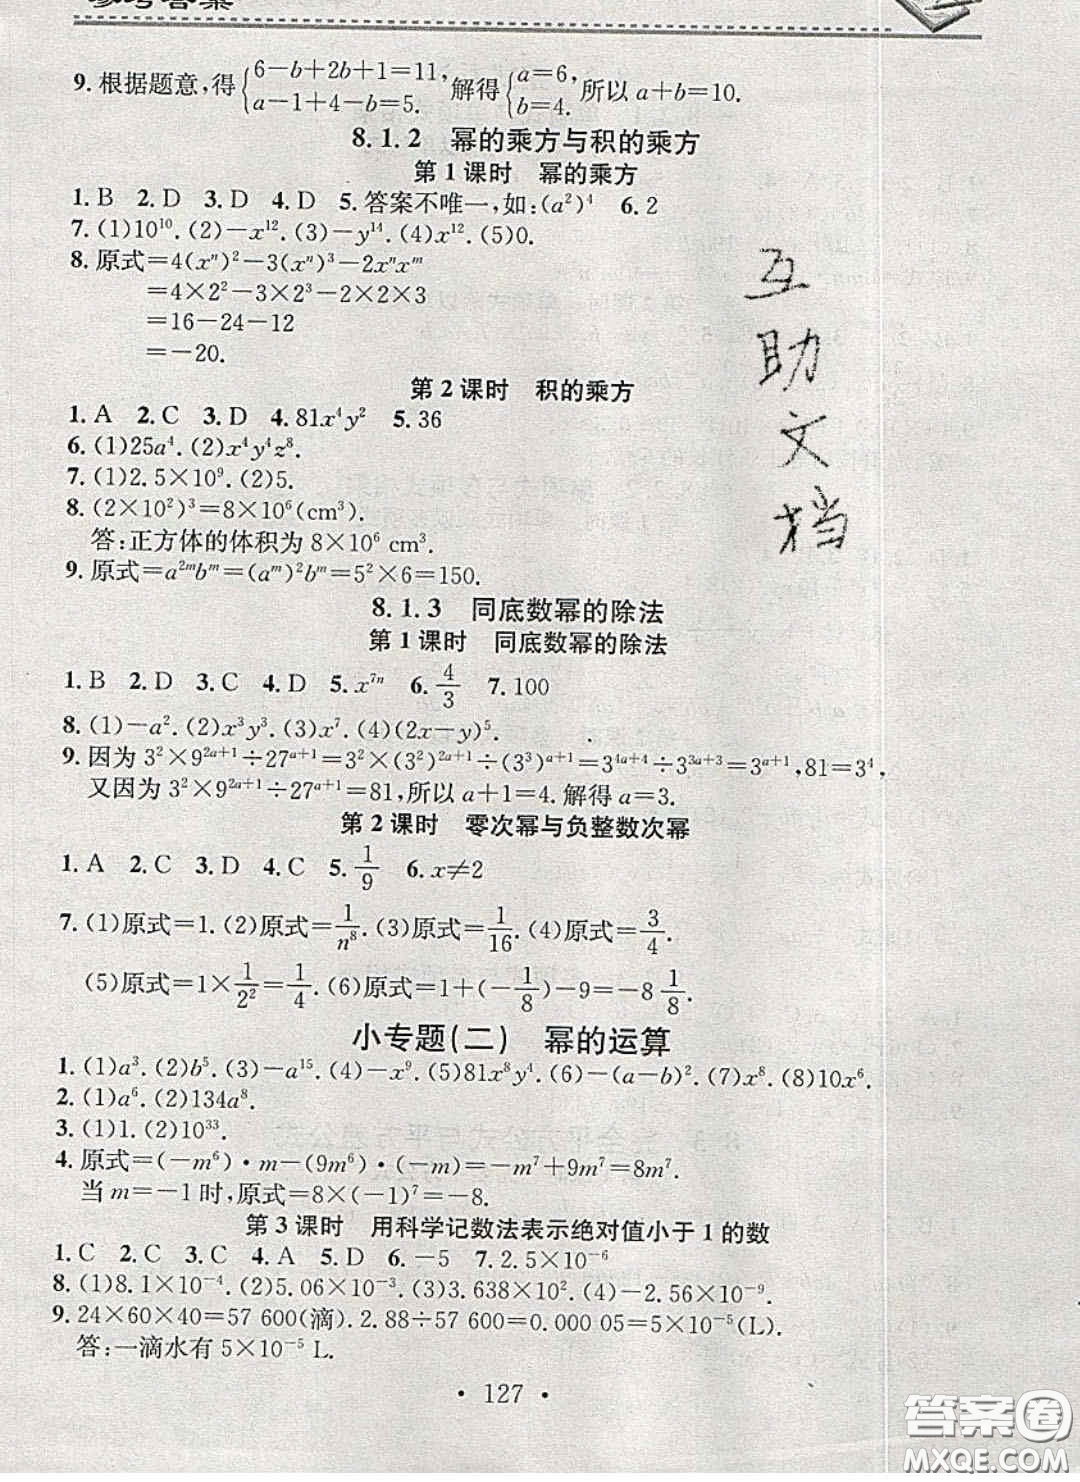 参考答案
9. 根据题意,得{6−b+2b+1=11, a−1+4−b=5. 解得{a=6, b=4. 所以 a+b=10.
8.1.2 幂的乘方与积的乘方
第1课时 幂的乘方
1. B 2. D 3. D 4. D 5. 答案不唯一,如:(a²)⁴ 6. 2
7. (1)10¹⁰. (2)−x¹². (3)−y¹⁴. (4)x¹². (5)0.
8. 原式=4(xⁿ)²−3(xⁿ)³−2xⁿxᵐ
=4×2²−3×2³−2×2×3
=16−24−12
=−20.
第2课时 积的乘方
1. A 2. C 3. D 4. 81x⁴y² 5. 36
6. (1)25a⁴. (2)x⁴y⁴z⁸.
7. (1)2.5×10⁹. (2)5.
8. (2×10²)³=8×10⁶(cm³).
答:正方体的体积为 8×10⁶ cm³.
9. 原式=a²ᵐbᵐ=(aᵐ)²bᵐ=5²×6=150.
8.1.3 同底数幂的除法
第1课时 同底数幂的除法
1. B 2. D 3. C 4. D 5. x⁷ⁿ 6. 4/3 7. 100
8. (1)−a². (2)x³y³. (3)x⁷. (4)(2x−y)⁵.
9. 因为 3²×9²ᵃ⁺¹÷27ᵃ⁺¹=3²×(3²)²ᵃ⁺¹÷(3³)ᵃ⁺¹=3⁴ᵃ⁺⁴÷3³ᵃ⁺³=3ᵃ⁺¹,81=3⁴,
又因为 3²×9²ᵃ⁺¹÷27ᵃ⁺¹=81,所以 a+1=4. 解得 a=3.
第2课时 零次幂与负整数次幂
1. A 2. C 3. D 4. C 5. 1/9 6. x≠2
7. (1)原式=1. (2)原式=1/n⁸. (3)原式=1/16. (4)原式=3/4.
(5)原式=1×1/2²=1/4. (6)原式=1+(−1/8)−9=−8 1/8.
小专题(二) 幂的运算
1. (1)a³. (2)b⁵. (3)−a¹⁵. (4)−x⁹. (5)81x⁸y⁴. (6)−(a−b)². (7)x⁸. (8)10x⁶.
2. (1)a⁶. (2)134a⁸.
3. (1)1. (2)10³³.
4. 原式=(−m⁶)·m−(9m⁶)·(−m)=−m⁷+9m⁷=8m⁷.
当 m=−1 时,原式=8×(−1)⁷=−8.
第3课时 用科学记数法表示绝对值小于1的数
1. C 2. C 3. C 4. A 5. D 6. −5 7. 2.5×10⁻⁶
8. (1)8.1×10⁻⁴. (2)5.06×10⁻³. (3)3.638×10². (4)−2.56×10⁻⁹.
9. 24×60×40=57 600(滴). 2.88÷57 600=0.000 05=5×10⁻⁵(L).
答:一滴水有 5×10⁻⁵ L.
· 127 ·
互
助
文
档
答案圈
MXQE.COM